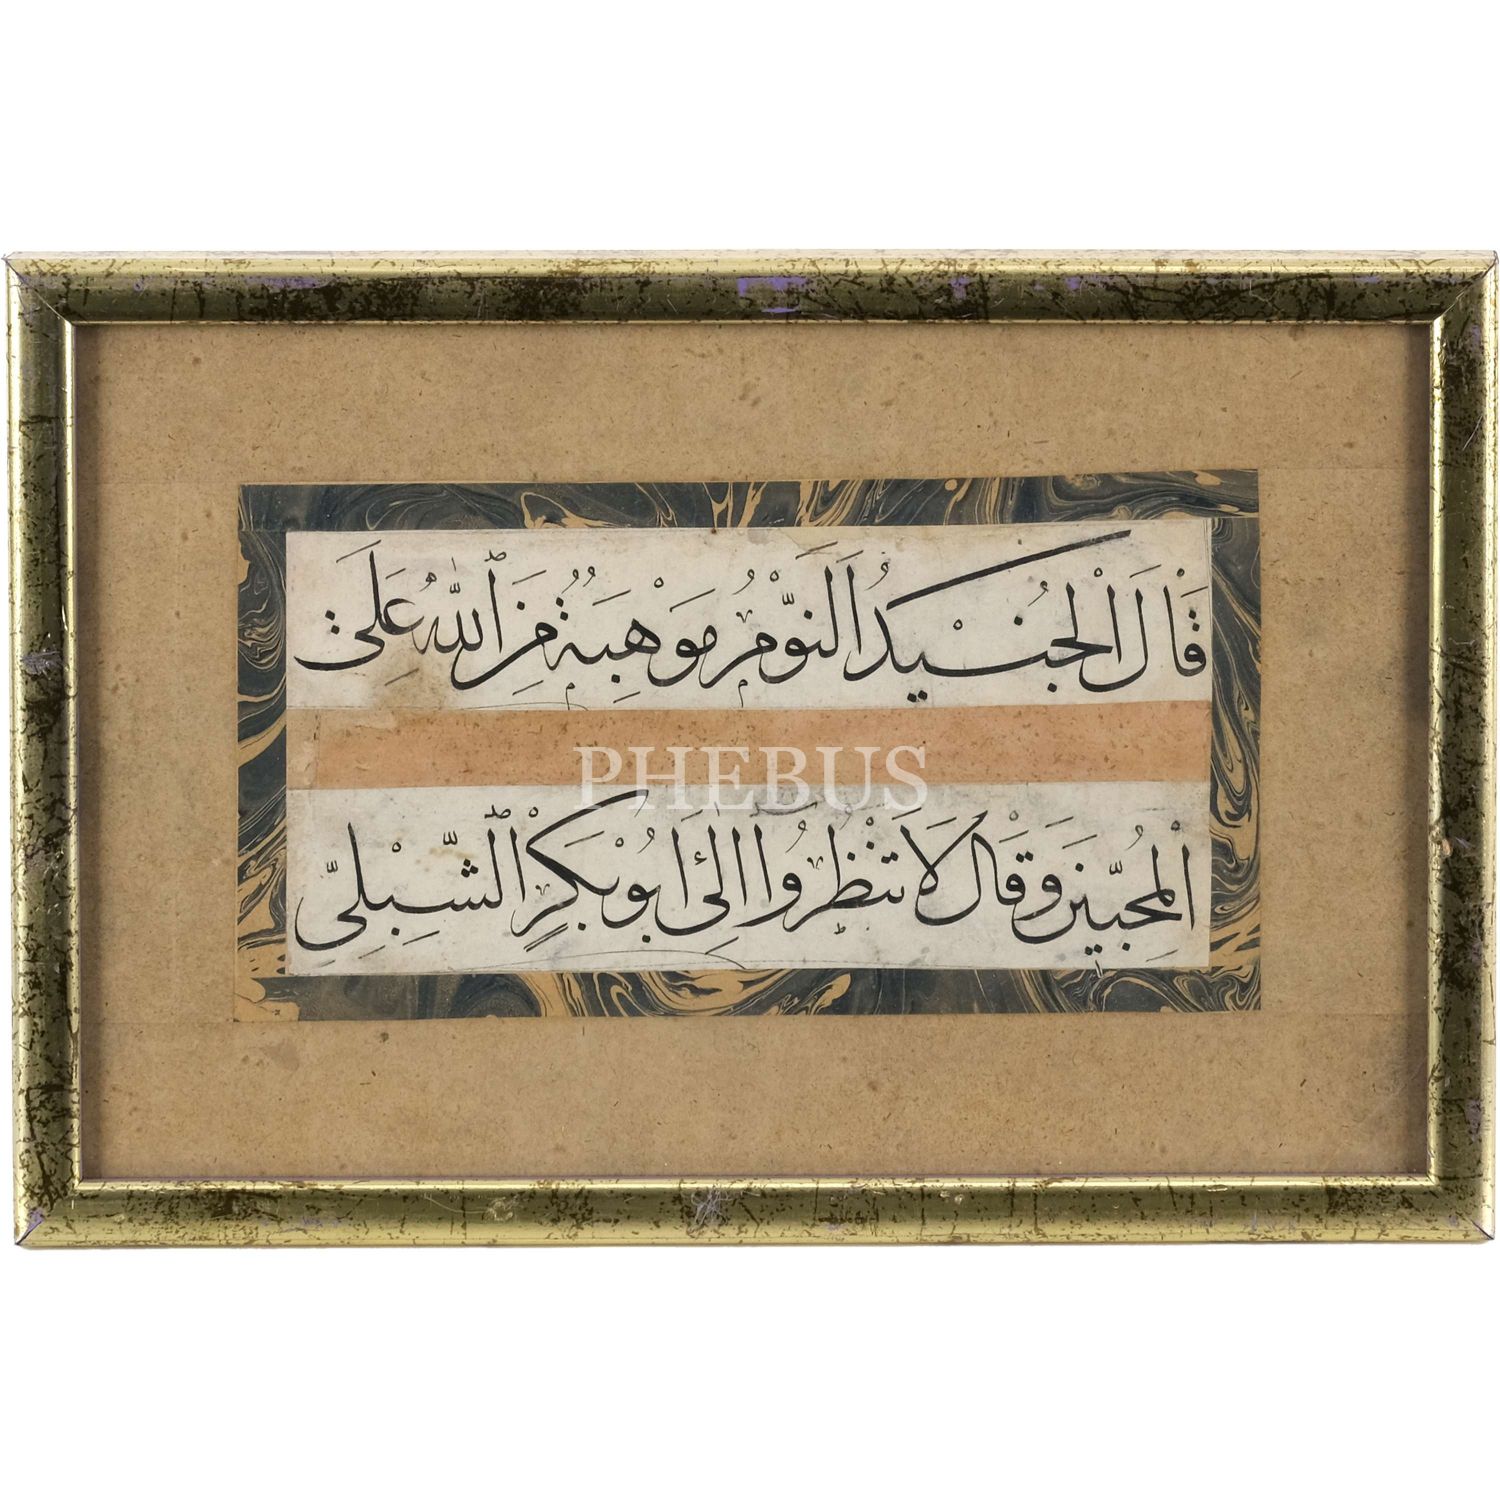 قَالَ الْجُنَيْدُ اَلنَّوْمُ مَوْهِبَةٌ مِنَ اللّٰهُ عَلَى
PHEBUS
الْمُحِبِّينَ وَقَالَ لَا تَنْظُرُوا اِلٰى اَبُو بَكْرِ الشِّبْلِىِّ